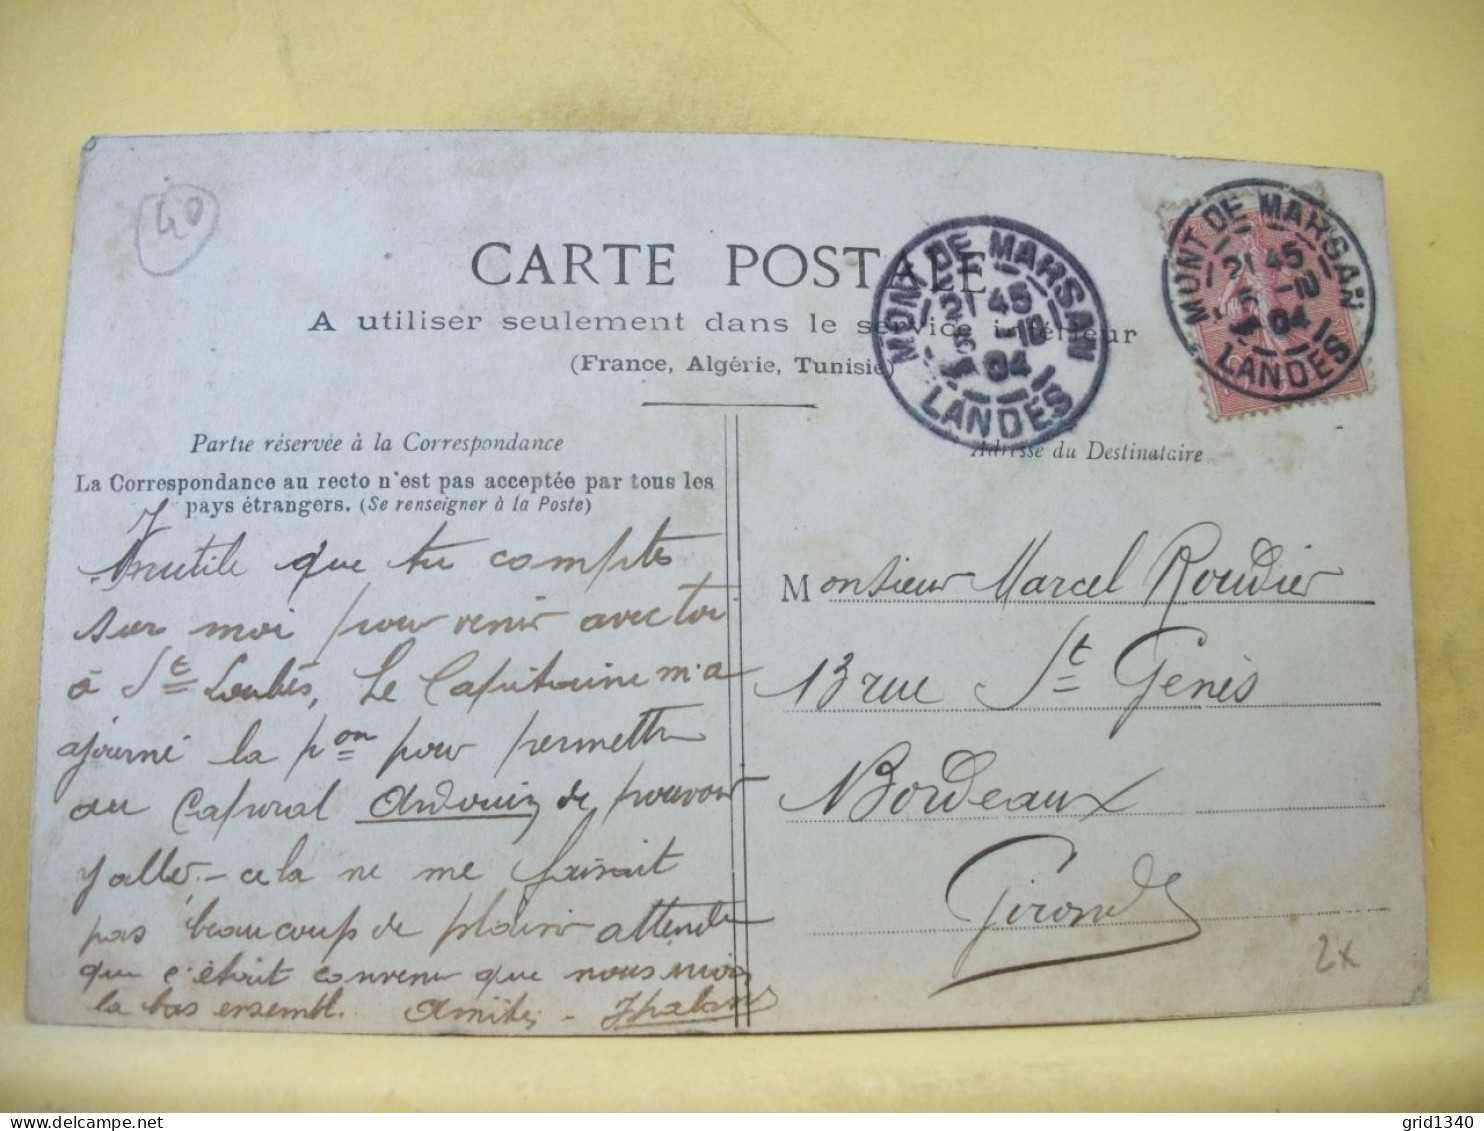 40
CARTE POSTALE
A utiliser seulement dans le service intérieur
(France, Algérie, Tunisie)
MONT DE MARSAN
21 45
5 -10
04
LANDES
MONT DE MARSAN
21 45
5 -10
04
LANDES
Partie réservée à la Correspondance
La Correspondance au recto n'est pas acceptée par tous les
pays étrangers. (Se renseigner à la Poste)
Inutile que tu comptes
sur moi pour venir avec toi
à St Loubès, Le Capitaine m'a
ajourné la pon pour permettre
au Caporal Ardouin de pouvoir
y aller. - cela ne me faisait
pas beaucoup de plaisir attendu
que c'était convenu que nous irions
la bas ensemble. Amitiés -
Adresse du Destinataire
Monsieur Marcel Roudier
13 rue St Genès
Bordeaux
Gironde
2x
grid1340